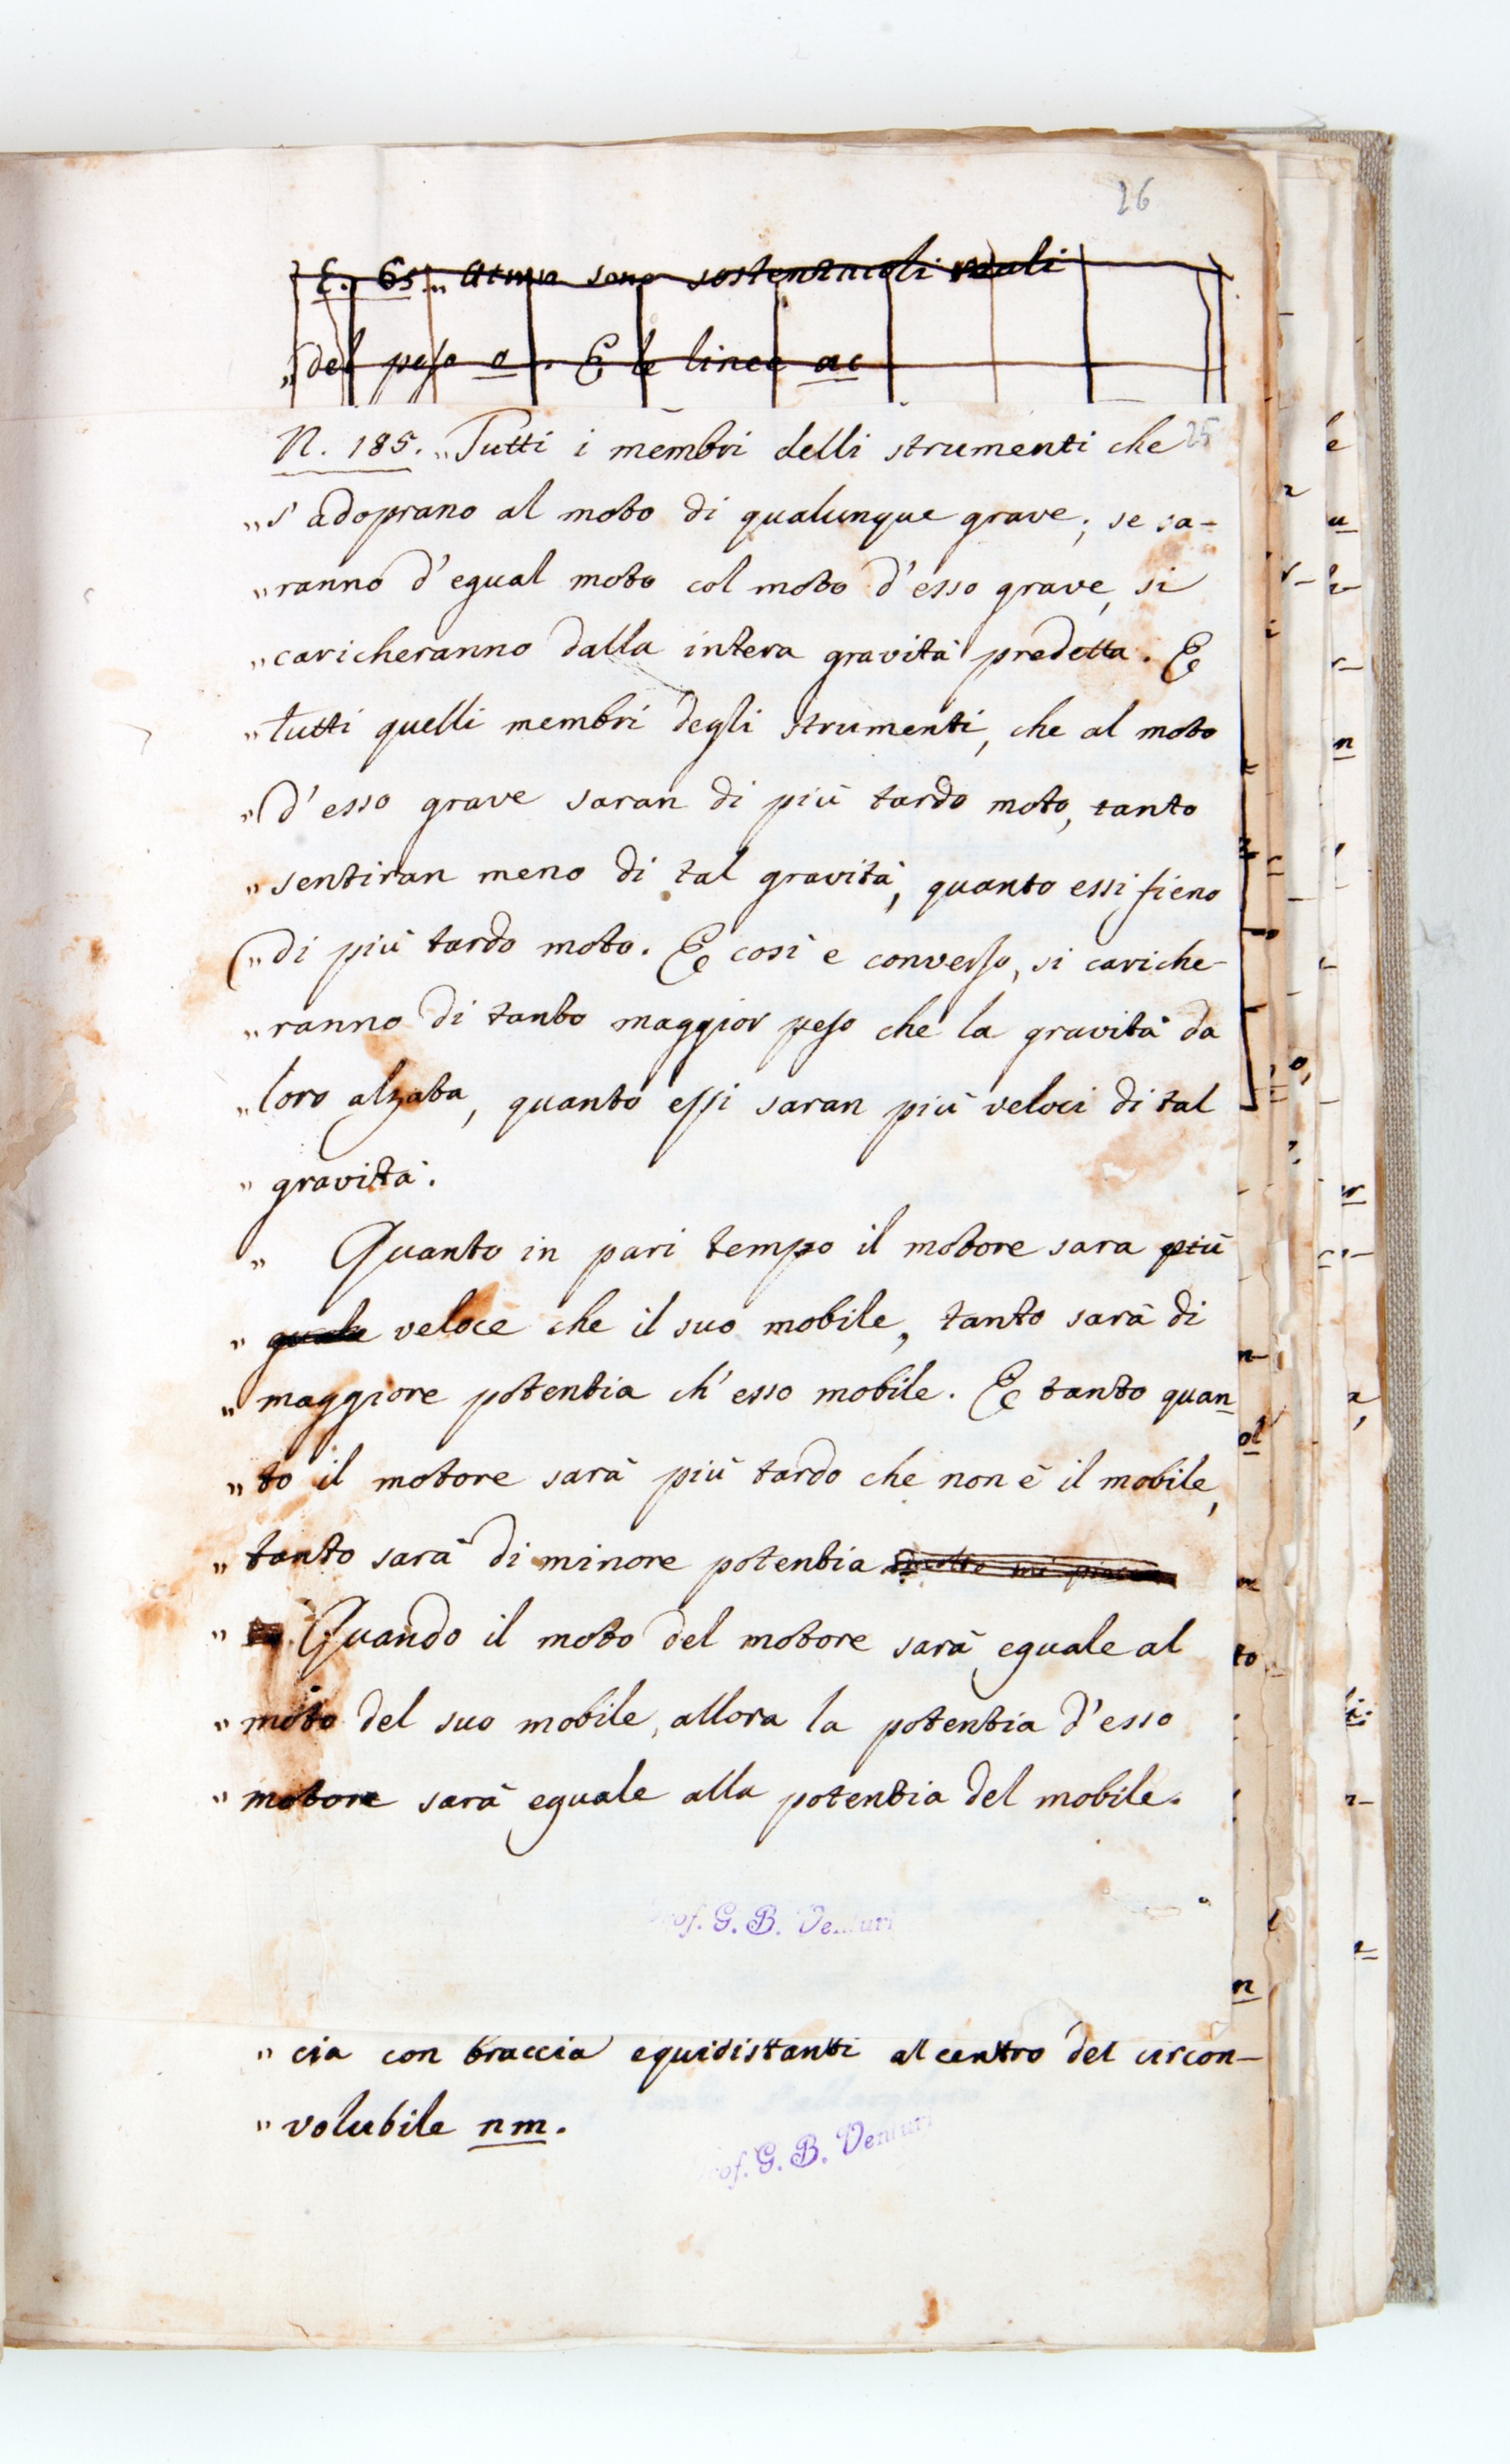 26
E. 65. „ at m n sono sostentacoli reali
„ del peso o. E le linee ac
N. 185. „ Tutti i membri delli strumenti che 25
„ s' adoprano al moto di qualunque grave; se sa-
„ ranno d'egual moto col moto d'esso grave, si
„ caricheranno dalla intera gravità predetta. E
„ tutti quelli membri degli strumenti, che al moto
„ d'esso grave saran di più tardo moto, tanto
„ sentiran meno di tal gravità, quanto essi fieno
„ di più tardo moto. E così e converso, si cariche-
„ ranno di tanto maggior peso che la gravità da
„ loro alzata, quanto essi saran più veloci di tal
„ gravità.
„ Quanto in pari tempo il motore sara più
„ veloce che il suo mobile, tanto sarà di
„ maggiore potentia ch' esso mobile. E tanto quan
„ to il motore sarà più tardo che non è il mobile,
„ tanto sarà di minore potentia
„ Quando il moto del motore sarà eguale al
„ moto del suo mobile, allora la potentia d'esso
„ motore sarà eguale alla potentia del mobile.
Prof. G. B. Venturi
„ cia con braccia equidistanti al centro del circon-
„ volubile nm.
Prof. G. B. Venturi